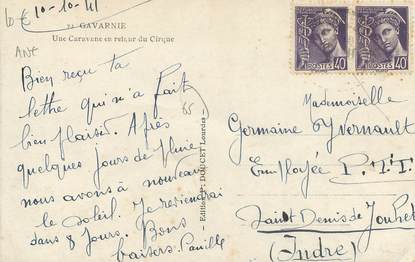 10-10-41
10 €
ANT
GAVARNIE
Une Caravane en retour du Cirque
Bien reçu ta
lettre qui m'a fait
bien plaisir. Après
quelques jours de pluie
nous avons à nouveau
le soleil. Je reviendrai
dans 8 jours. Bons
baisers. Camille
65
Edition P. DOUCET Lourdes
POSTES 40
POSTES 40
Mademoiselle
Germaine Yvernault
Employée P.T.T.
Saint Denis de Jouhet
(Indre)